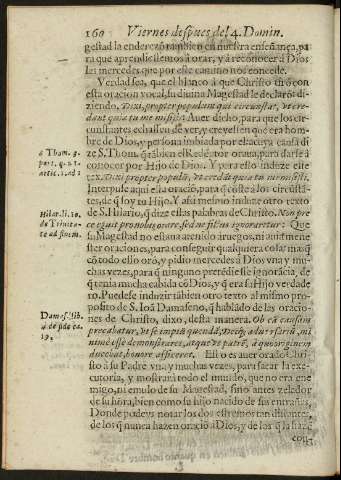 160 Viernes despues del 4. Domin.
gestad la enderezò tambien en nuestra enseñança, pa
ra que aprendiessemos à orar, y à reconocer à Dios
las mercedes que por esse camino nos concede.
Verdad sea, que el blanco à que Christo tirò con
esta oracion vocal, su diuina Magestad le declarò: di-
ziendo. Dixi, propter populum qui circunstat, vt cre-
dant quia tu me misisti: Auer dicho, para que los cir-
cunstantes echassen de ver, y creyessen que era hom-
bre de Dios, y persona imbiada por el: a cuya causa di
à Thom. 3. ze S. Thom. q̃ tãbien el Redẽtor oraua, para darse à
part. q. 21. conocer por Hijo de Dios. Y para esso induze este
artic. 3. ad 1 tex. Dixi propter populũ, vt credãt quia tu me misisti.
Interpuse aqui esta oraciõ, para q̃ coste à los circũstã-
tes, de q̃ soy tu Hijo. Y assi mesmo induze otro texto
Hilar. li. 10. de S. Hilario, q̃ dize estas palabras de Christo. Non pre
de Trinita- ce eguit pro nobis orare, sed ne filius ignoraretur: Que
te ad finem. su Magestad no estaua atenido à ruegos, ni auia mene
ster oraciones, para conseguir qualquiera cosa: mas q̃
cõ todo esso orò, y pidio mercedes à Dios vna y mu-
chas vezes, para q̃ ninguno pretẽdiesse ignorãcia, de
q̃ tenia mucha cabida cõ Dios, y q̃ era su Hijo verdade
ro. Puedese induzir tãbien otro texto al mismo pro-
Damas. lib. posito de S. Ioã Damasceno, q̃ hablãdo de las oracio
4. de fide ca. nes de Christo, dixo, desta manera. Ob eã causam
19. precabatur, vt se impiũ quendã, Deoq́; aduersariũ, mi
nimè esse demonstraret, atque vt patrẽ, à quo originem
ducebat, honore afficeret. Esto es auer orado Chri-
sto à su Padre vna, y muchas vezes, para sacar la exe-
cutoria, y mostrar à todo el mundo, que no era ene
migo, ni emulo de su Magestad, sino antes zelador
de su hõra, bien como su hijo nacido de sus entrañas.
Donde podeys notar los dos estremos tan distantes,
de los q̃ nunca hazen oraciõ à Dios, y de los q̃ la hazẽ
con-